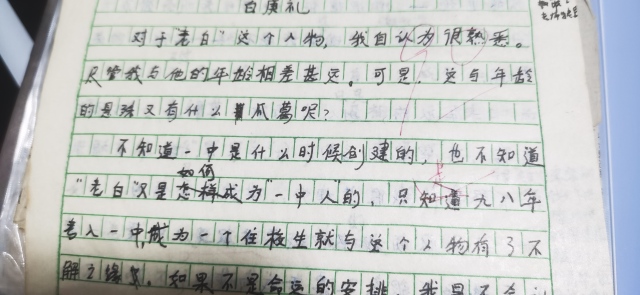 白庚礼
对于"老白"这个人物，我自认为很熟悉。
尽管我与他的年龄相差甚远。可是，这与年龄
的是法又有什么瓜葛呢？
不知道一中是什么时候创建的，也不知道
如何
"老白"又是怎样成为"一中人"的，只知道九八年
考入一中，成为一个住校生就与这个人物有了不
解之缘
如果不是命运的安排，我是不会